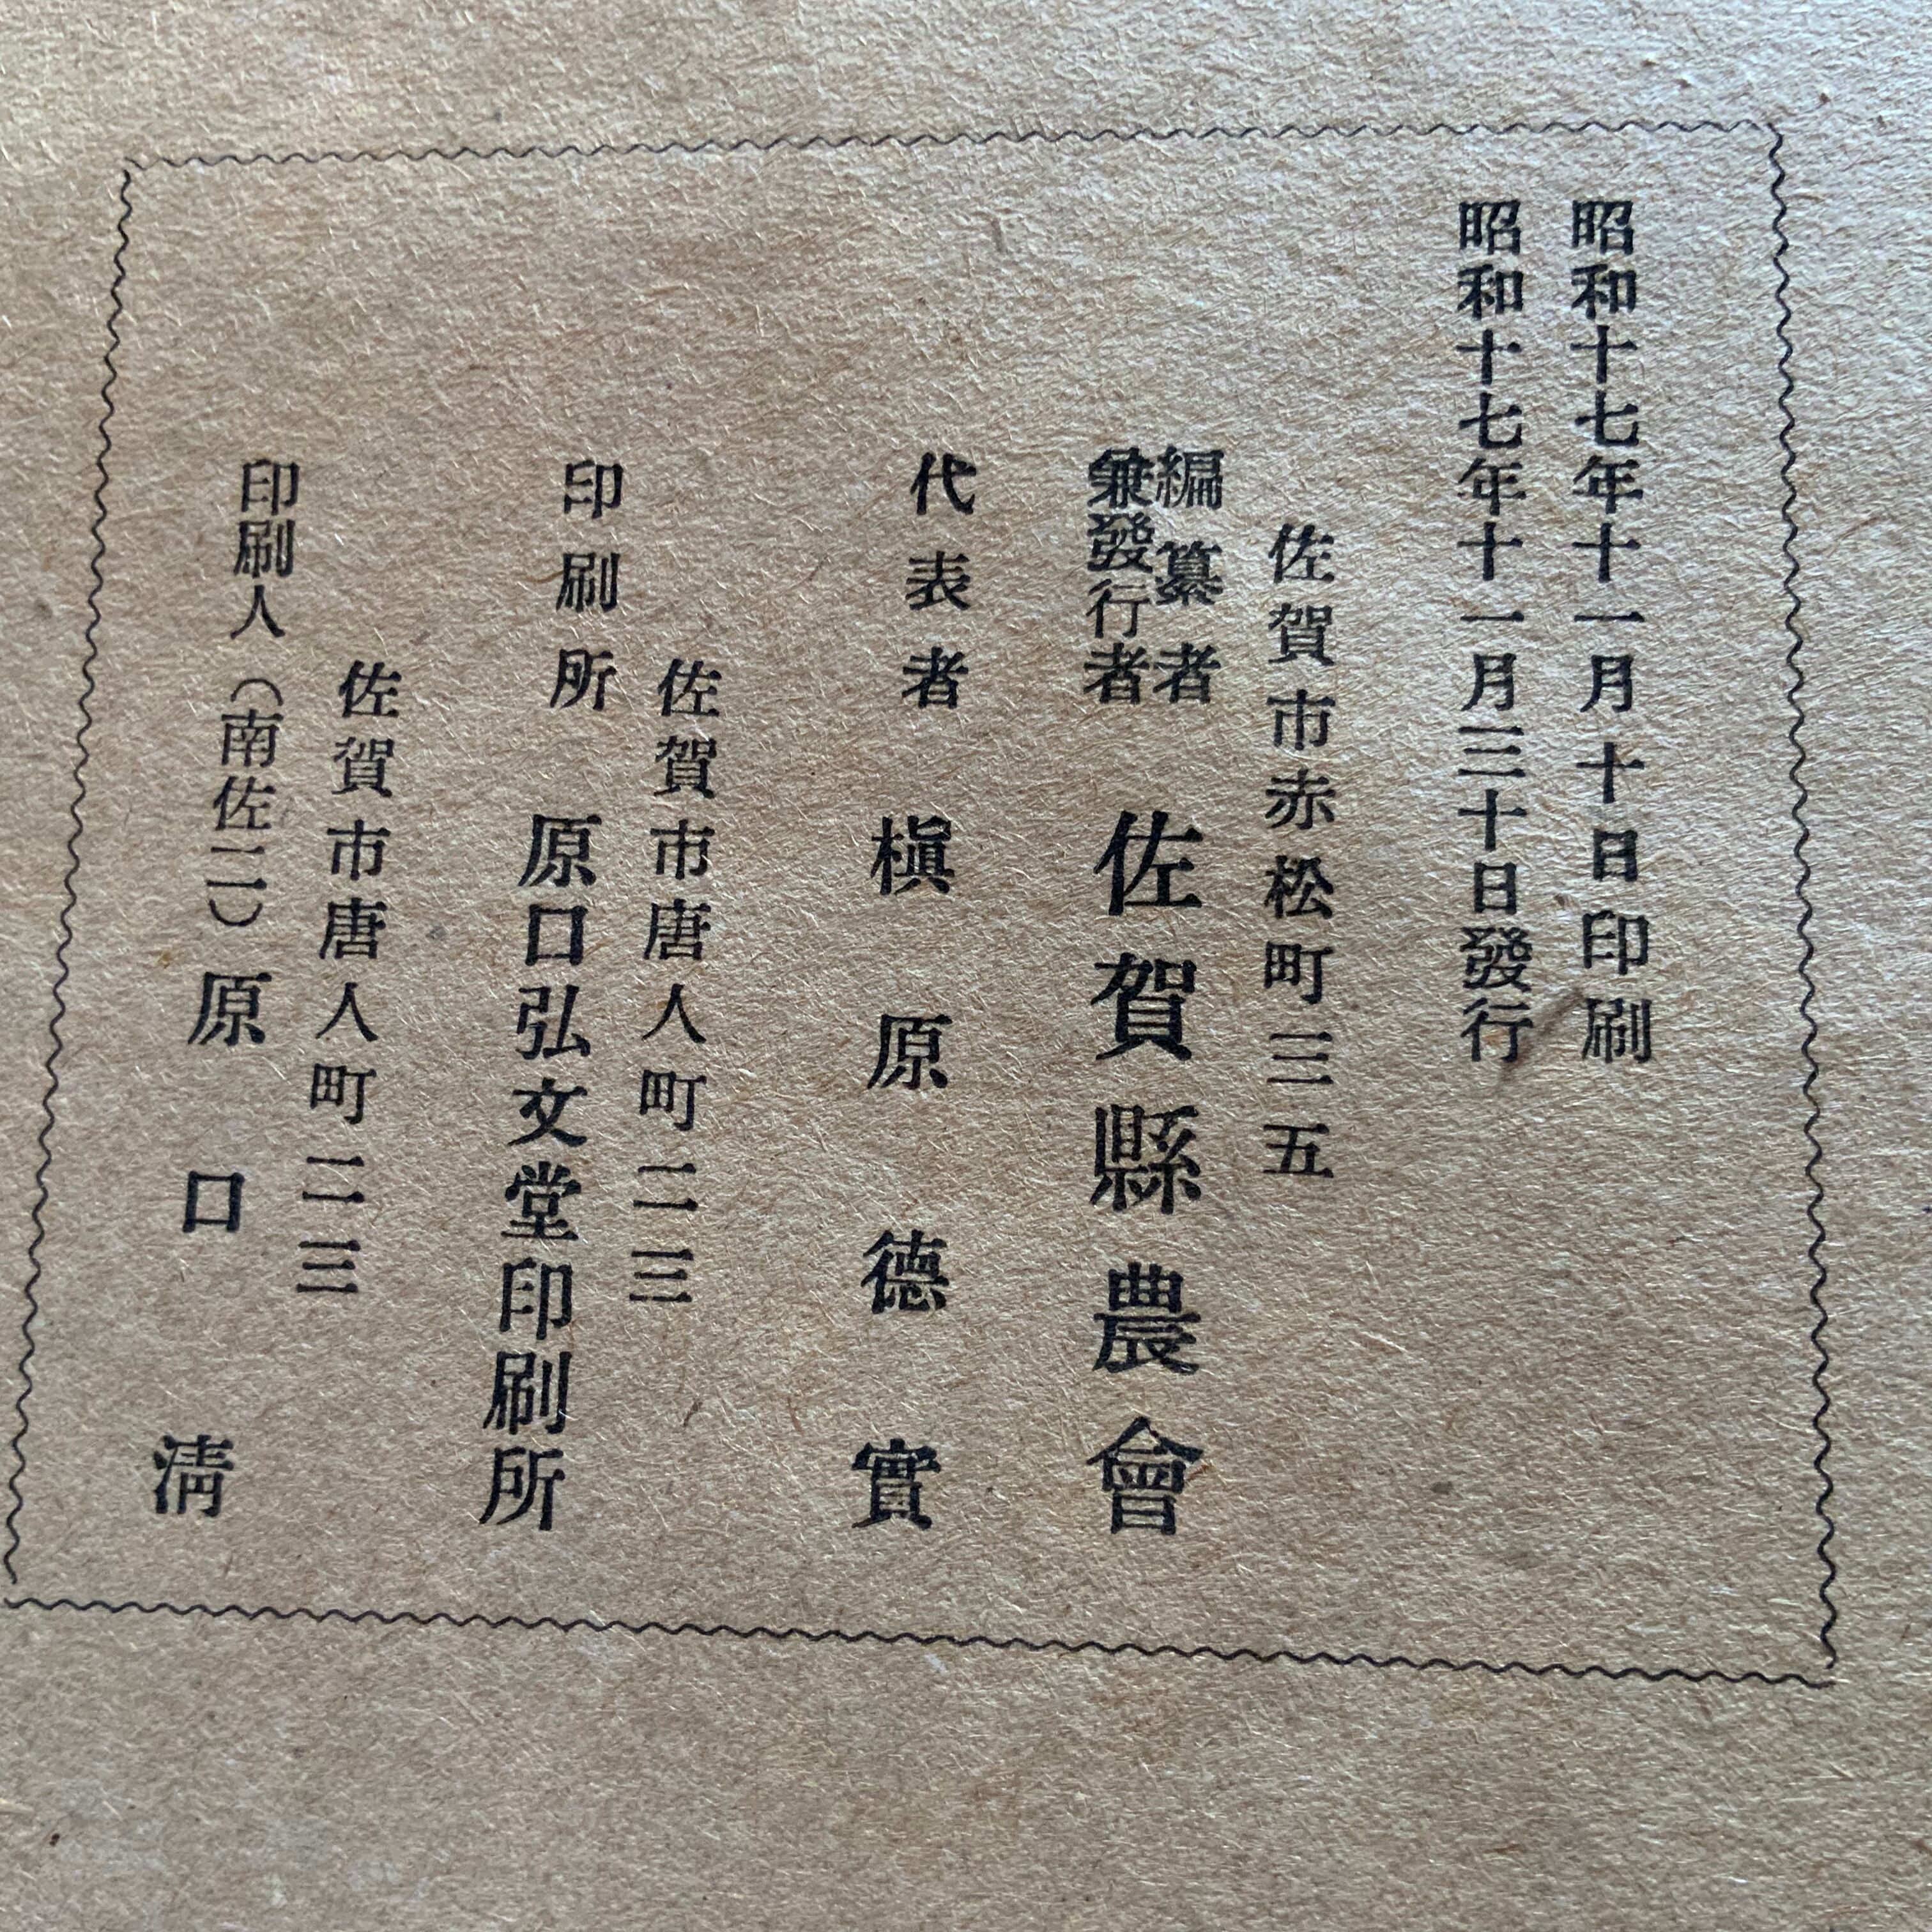 昭和十七年十一月十日印刷
昭和十七年十一月三十日發行
佐賀市赤松町三五
編纂者
兼發行者
佐賀縣農會
代表者 槇原德實
佐賀市唐人町二三
印刷所 原口弘文堂印刷所
佐賀市唐人町二三
印刷人（南佐二）原口淸